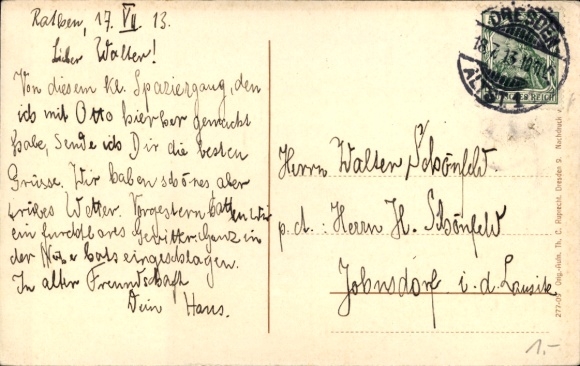 Rathen, 17. VII 13.
Lieber Walter!
Von diesem kl. Spaziergang, den
ich mit Otto hierher gemacht
habe, sende ich Dir die besten
Grüsse. Wir haben schönes aber
Wetter. Vorgestern hatten wir
ein furchtbares Gewitter. Ganz in
der Nähe hats eingeschlagen.
In alter Freundschaft
Dein Hans.
DRESDEN
18.7.13
ALTST. 1
DEUTSCHES REICH
Herrn Walter Schönfeld.
p. ad.: Herrn H. Schönfeld
Johnsdorf i. d. Lausitz
277-09 Orig.-Aufn. Th. C. Ruprecht, Dresden 9. Nachdruck v
1.-